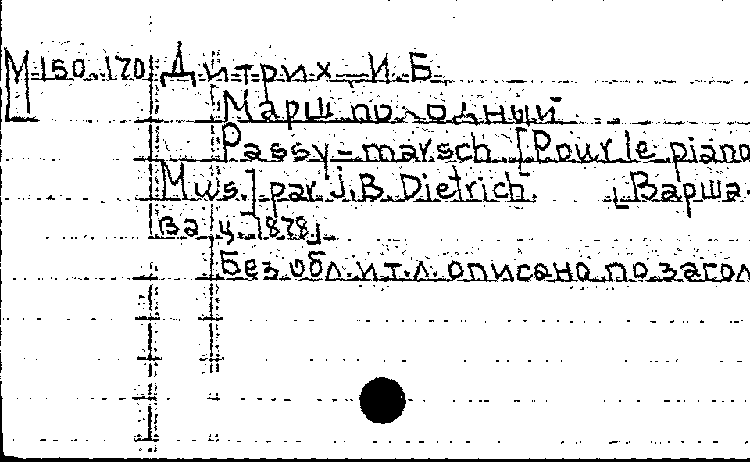 М 150.170 Дитрих И.Б.
Марш походный
Passy-marsch [Pour le piano
Mus.] par J.B. Dietrich. [Варша-
ва ц. 1878]
Без обл. и т.л. описано по загол